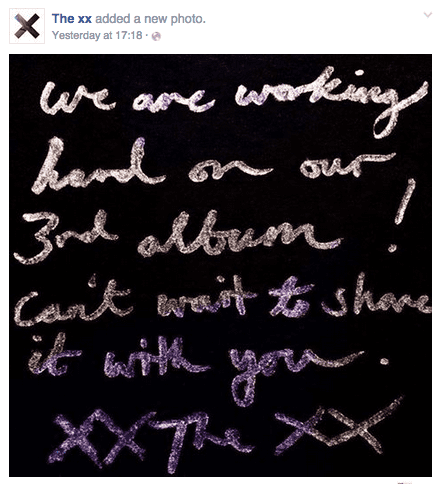 The xx added a new photo.
Yesterday at 17:18 ·
we are working
hard on our
3rd album !
can't wait to share
it with you .
XX The XX